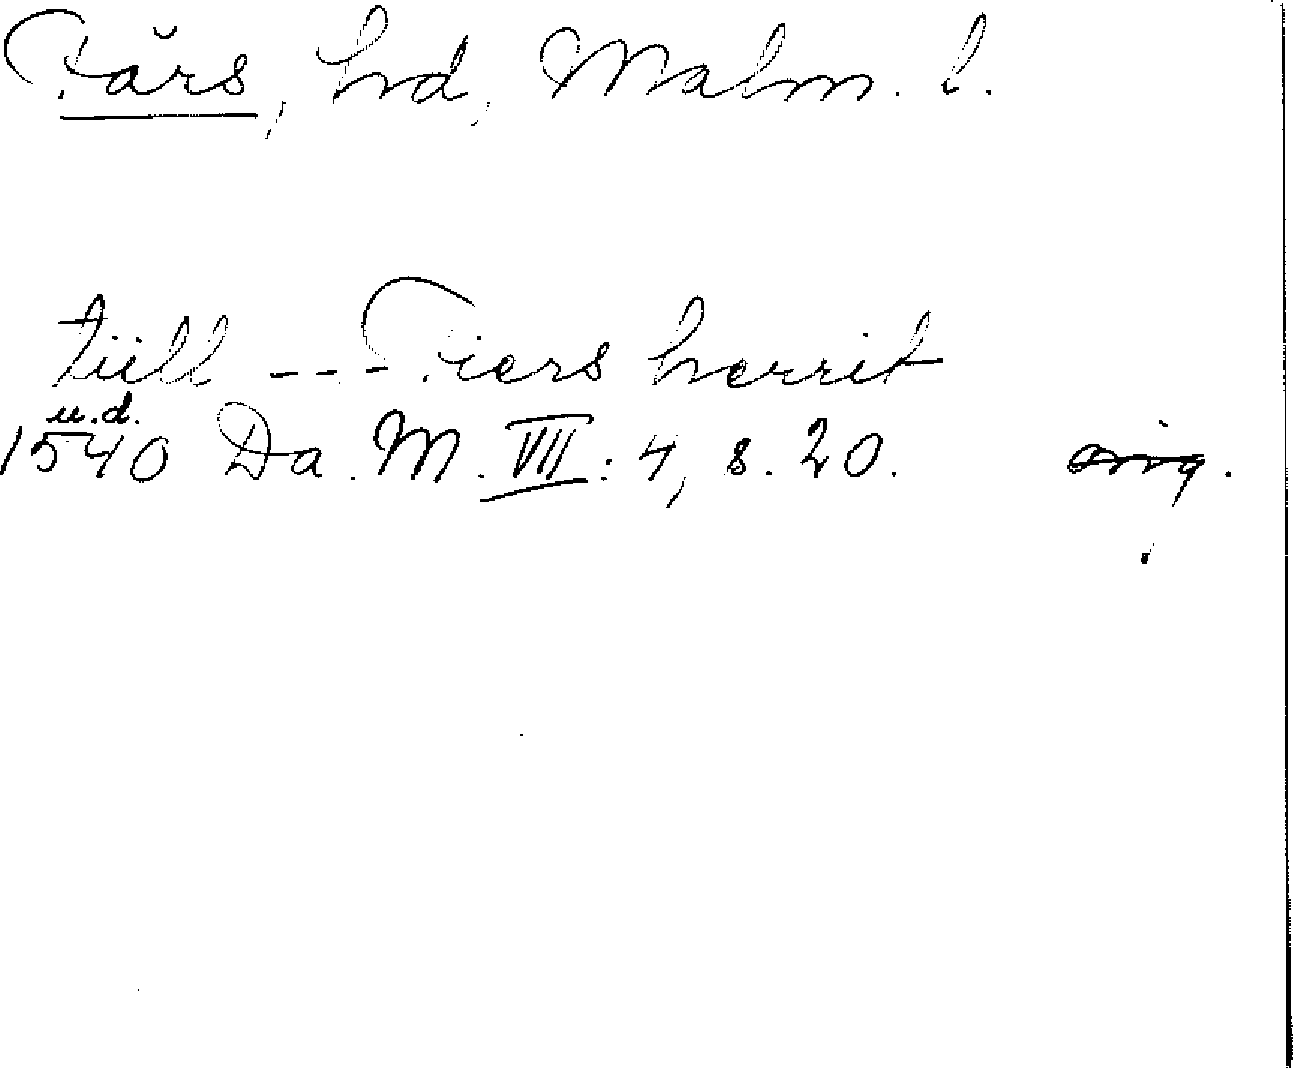 Färs, hd, Malm. l.
tiill --- Fiers herrit
u.d.
1540 Da. M. VII: 4, s. 20.